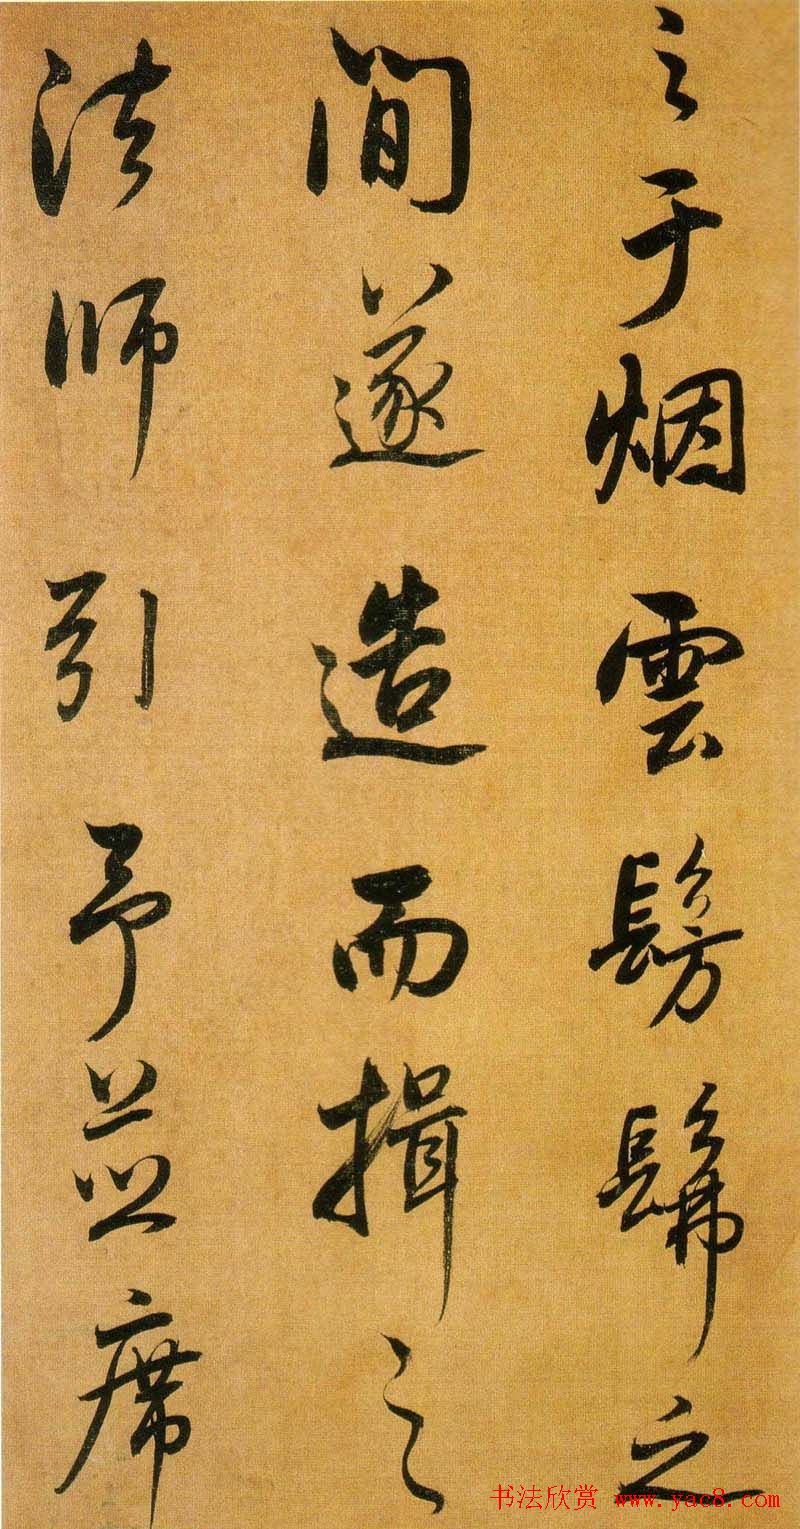 之于烟雲髣髴之
間遂造而揖之
法師引予並席
书法欣赏 www.yac8.com